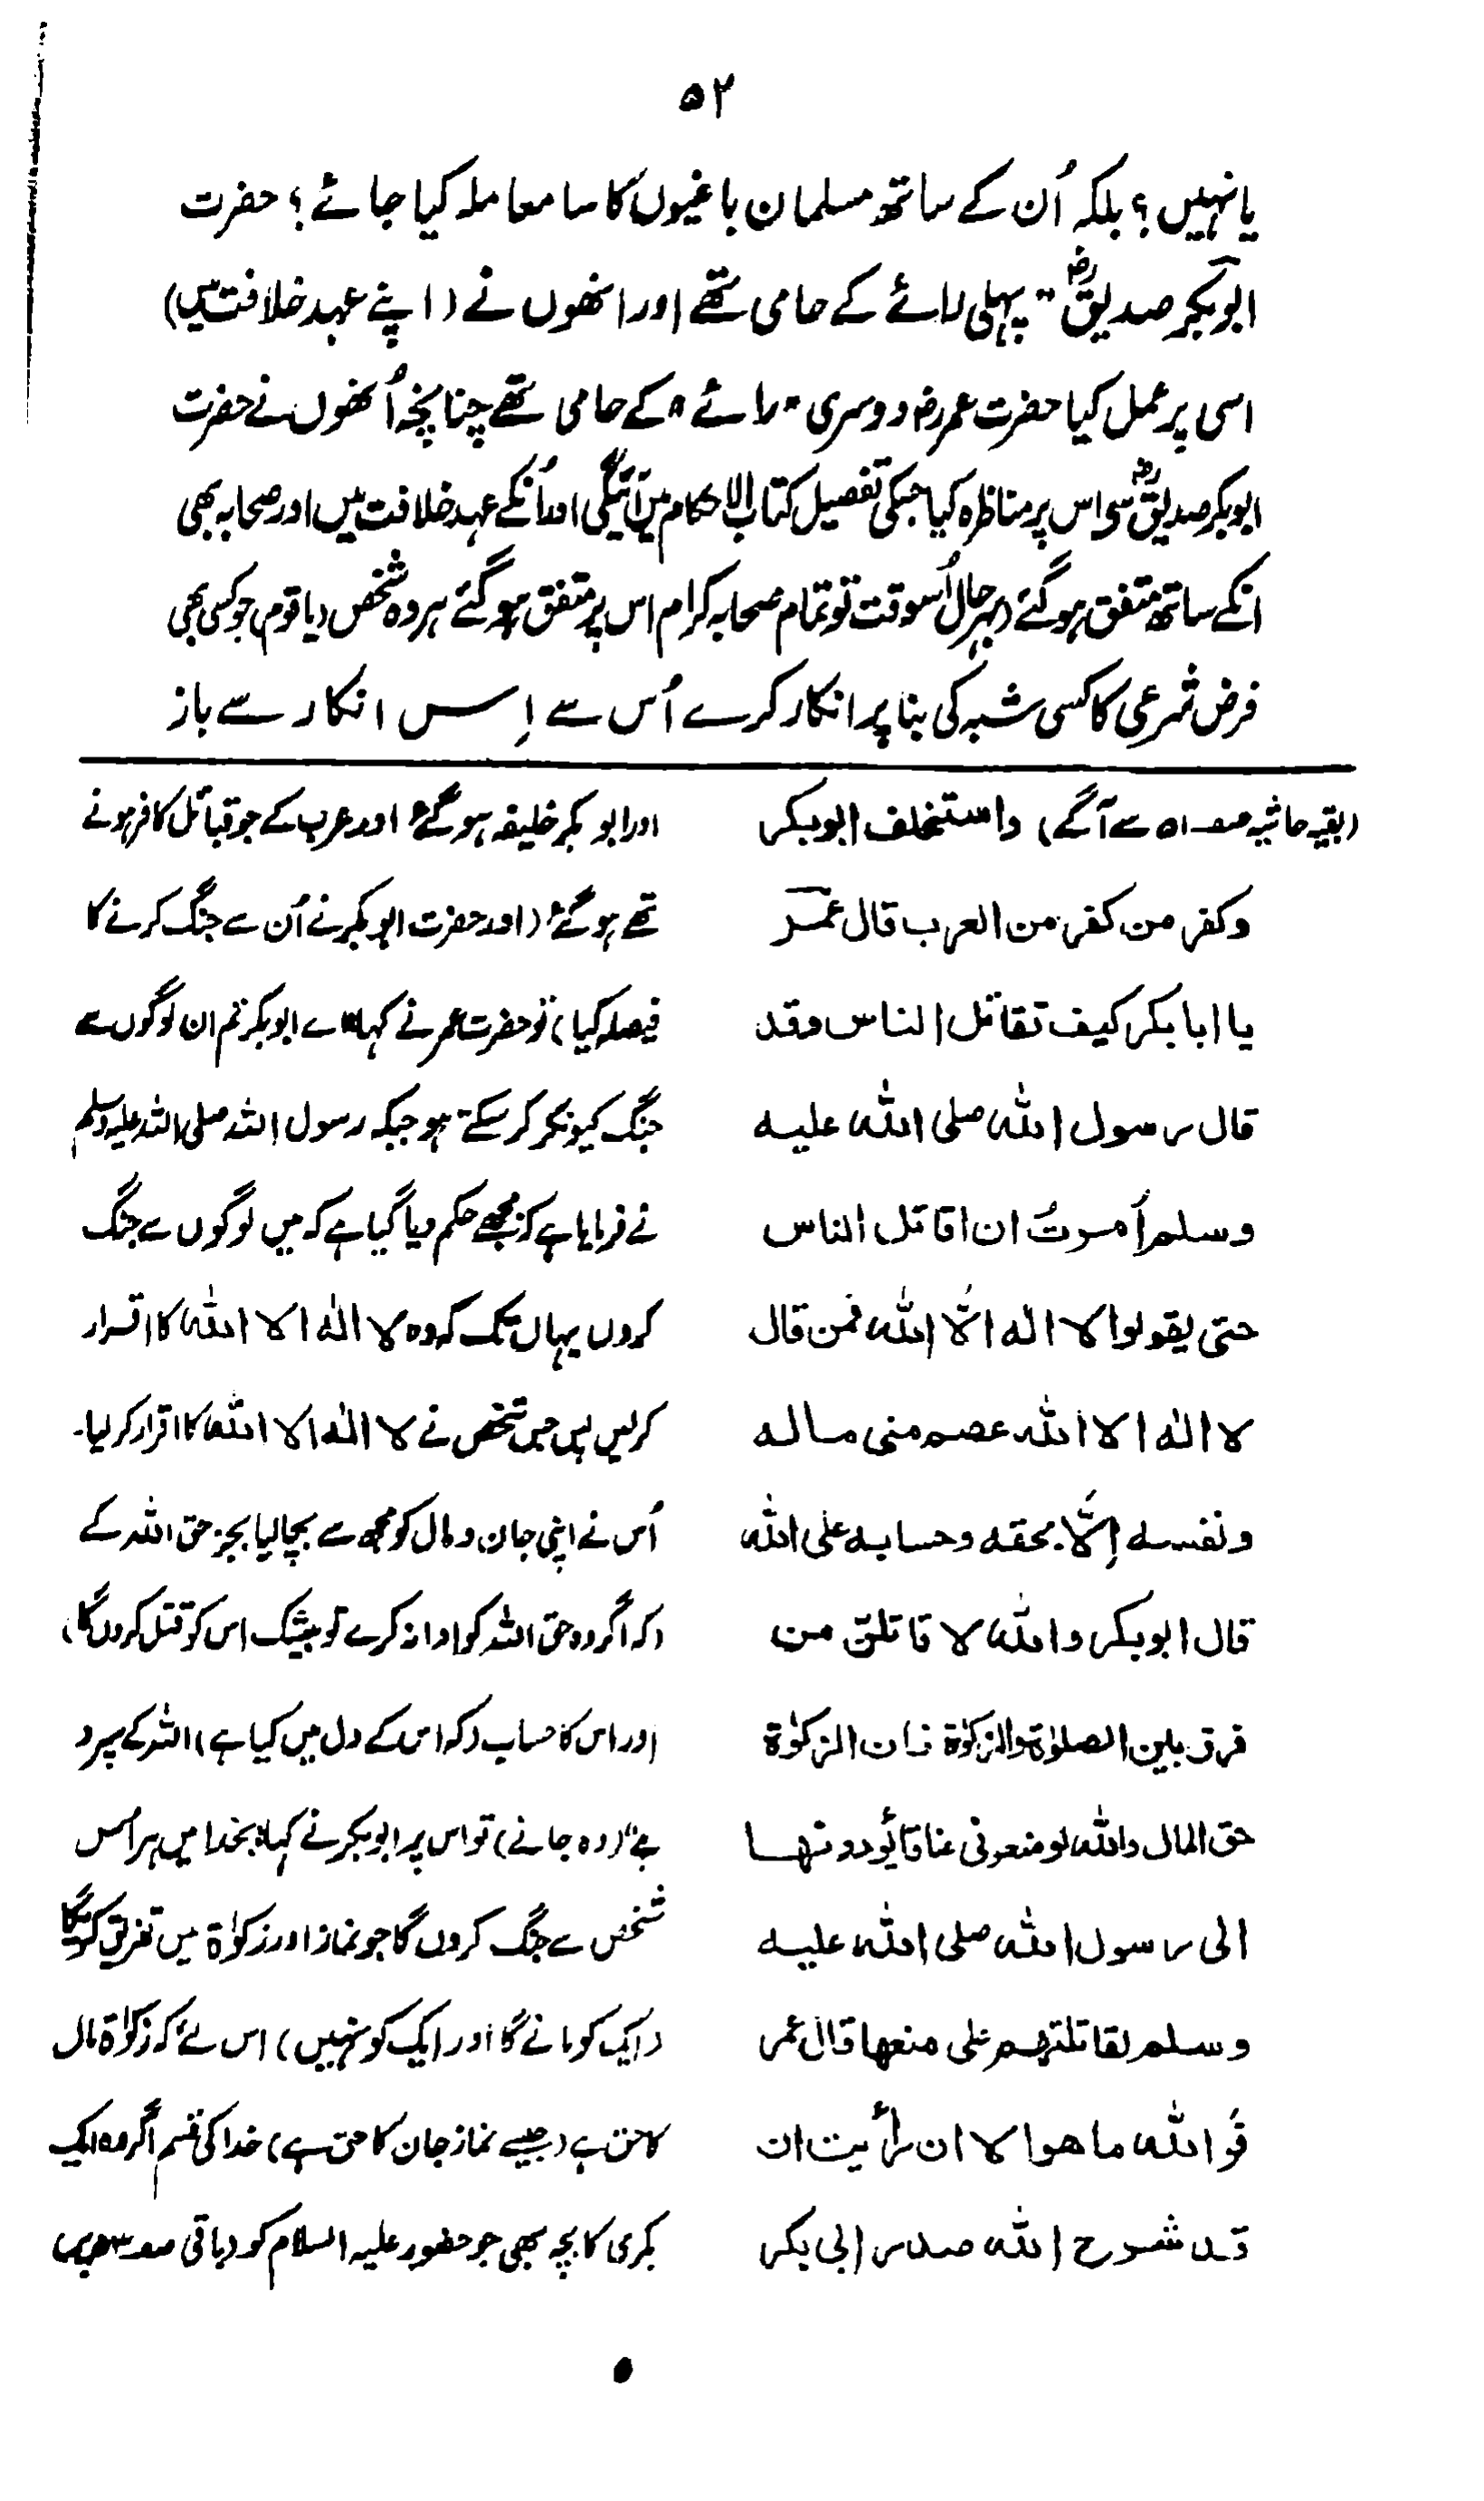 ۵۲
یا نہیں ؟ بلکہ اُن کے ساتھ مسلمان باغیوں کا سا معاملہ کیا جائے ؟ حضرت
ابوبکر صدیقؓ " پہلی رائے کے حامی تھے اور انھوں نے ( اپنے عہد خلافت میں )
اسی پر عمل کیا حضرت عمررضؓ دوسری " رائے " کے حامی تھے چنانچہ اُنھوں نے حضرت
ابوبکر صدیقؓ سے اس پر مناظرہ کیا جسکی تفصیل کتاب الاحکام میں آئیگی اور اُنکے عہد خلافت میں اور صحابہ بھی
انکے ساتھ متفق ہو گئے (بہرحال اُسوقت تو تمام صحابہ کرام اس پر متفق ہو گئے ہر وہ شخص (یا قوم) جو کسی بھی
فرض شرعی کا کسی شبہ کی بنا پر انکار کرے اُس سے اِس انکار سے باز
(بقیہ حاشیہ صـ ۵۱ سے آگے) واستخلف ابوبکر
وکفر من کفر من العرب قال عمر
یا ابا بکر کیف تقاتل الناس وقد
قال رسول الله صلی الله علیه
وسلم اُمرتُ ان اقاتل الناس
حتی یقولوا لا اله الّا الله فمن قال
لا الٰه الا الله عصم منی ماله
ونفسه اِلّا بحقه وحسابه علی الله
قال ابوبکر والله لاقاتلن من
فرق بین الصلوٰة والزکوٰة فان الزکوٰة
حق المال والله لو منعونی عناقا یُؤدونها
الی رسول الله صلی الله علیه
وسلم لقاتلتهم علی منعها قال عمر
فَوالله ما هو الا ان رأیت ان
قد شرح الله صدر ابی بکر
اور ابوبکر خلیفہ ہو گئے اور عرب کے جو قبائل کافر ہونے
تھے ہو گئے (اور حضرت ابوبکر نے اُن سے جنگ کرنے کا
فیصلہ کیا) تو حضرت عمر نے کہا: اے ابوبکر تم ان لوگوں سے
جنگ کیونکر کر سکتے ہو جبکہ رسول اللہ صلی اللہ علیہ وسلم
نے فرمایا ہے کہ مجھے حکم دیا گیا ہے کہ میں لوگوں سے جنگ
کروں یہاں تک کہ وہ لا الٰه الا الله کا اقرار
کرلیں پس جس شخص نے لا الٰه الا الله کا اقرار کر لیا۔
اُس نے اپنی جان و مال کو مجھ سے بچالیا بجز حق اللہ کے
(کہ اگر وہ حق اللہ کو ادا نہ کرے تو بیشک اس کو قتل کروں گا)
اور اس کا حساب (کہ اس کے دل میں کیا ہے) اللہ کے سپرد
ہے" (وہ جانے) تو اس پر ابوبکر نے کہا: بخدا میں ہر اُس
شخص سے جنگ کروں گا جو نماز اور زکوٰۃ میں تفریق کریگا
(ایک کو مانے گا اور ایک کو نہیں) اس لئے کہ زکوٰۃ مال
کا حق ہے (جیسے نماز جان کا حق ہے) خدا کی قسم اگر وہ ایک
بکری کا بچہ بھی جو حضور علیہ السلام کو (باقی صـ ۵۳ پر)